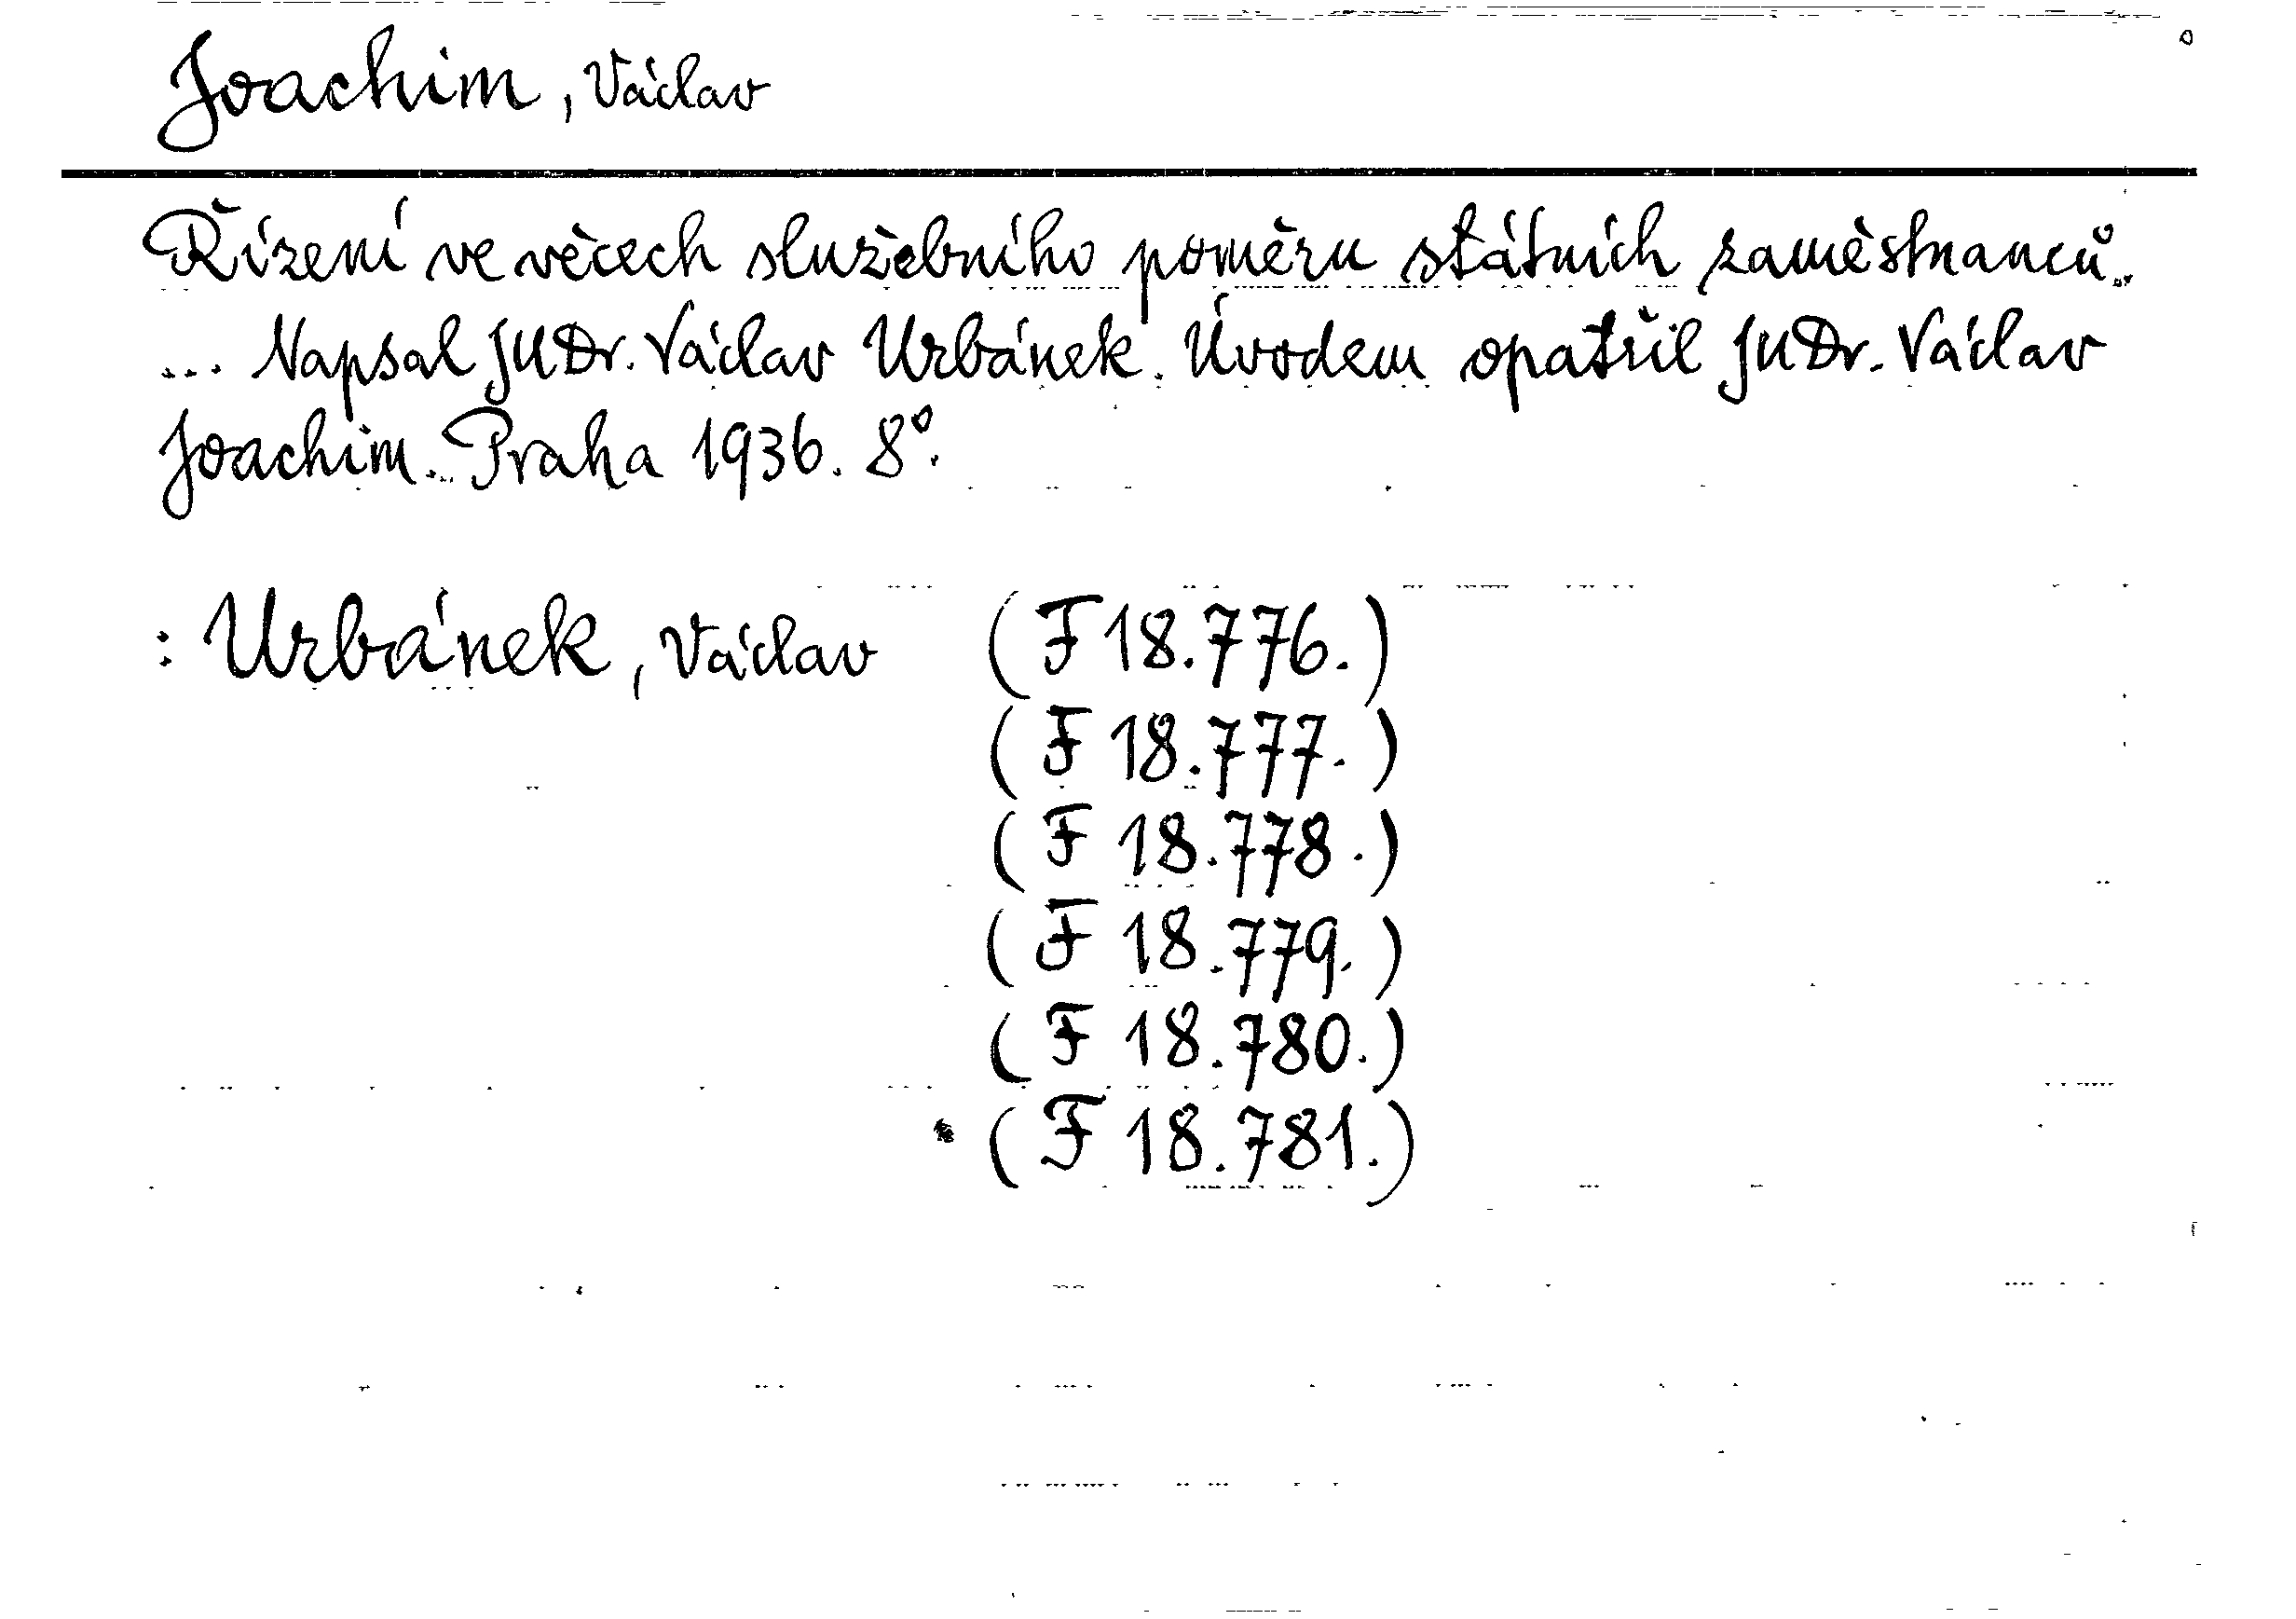 Joachim, Václav
Řízení ve věcech služebního poměru státních zaměstnanců.
... Napsal JUDr. Václav Urbánek. Úvodem opatřil JUDr. Václav
Joachim... Praha 1936. 8°.
: Urbánek, Václav (F 18.776.)
(F 18.777.)
(F 18.778.)
(F 18.779.)
(F 18.780.)
(F 18.781.)